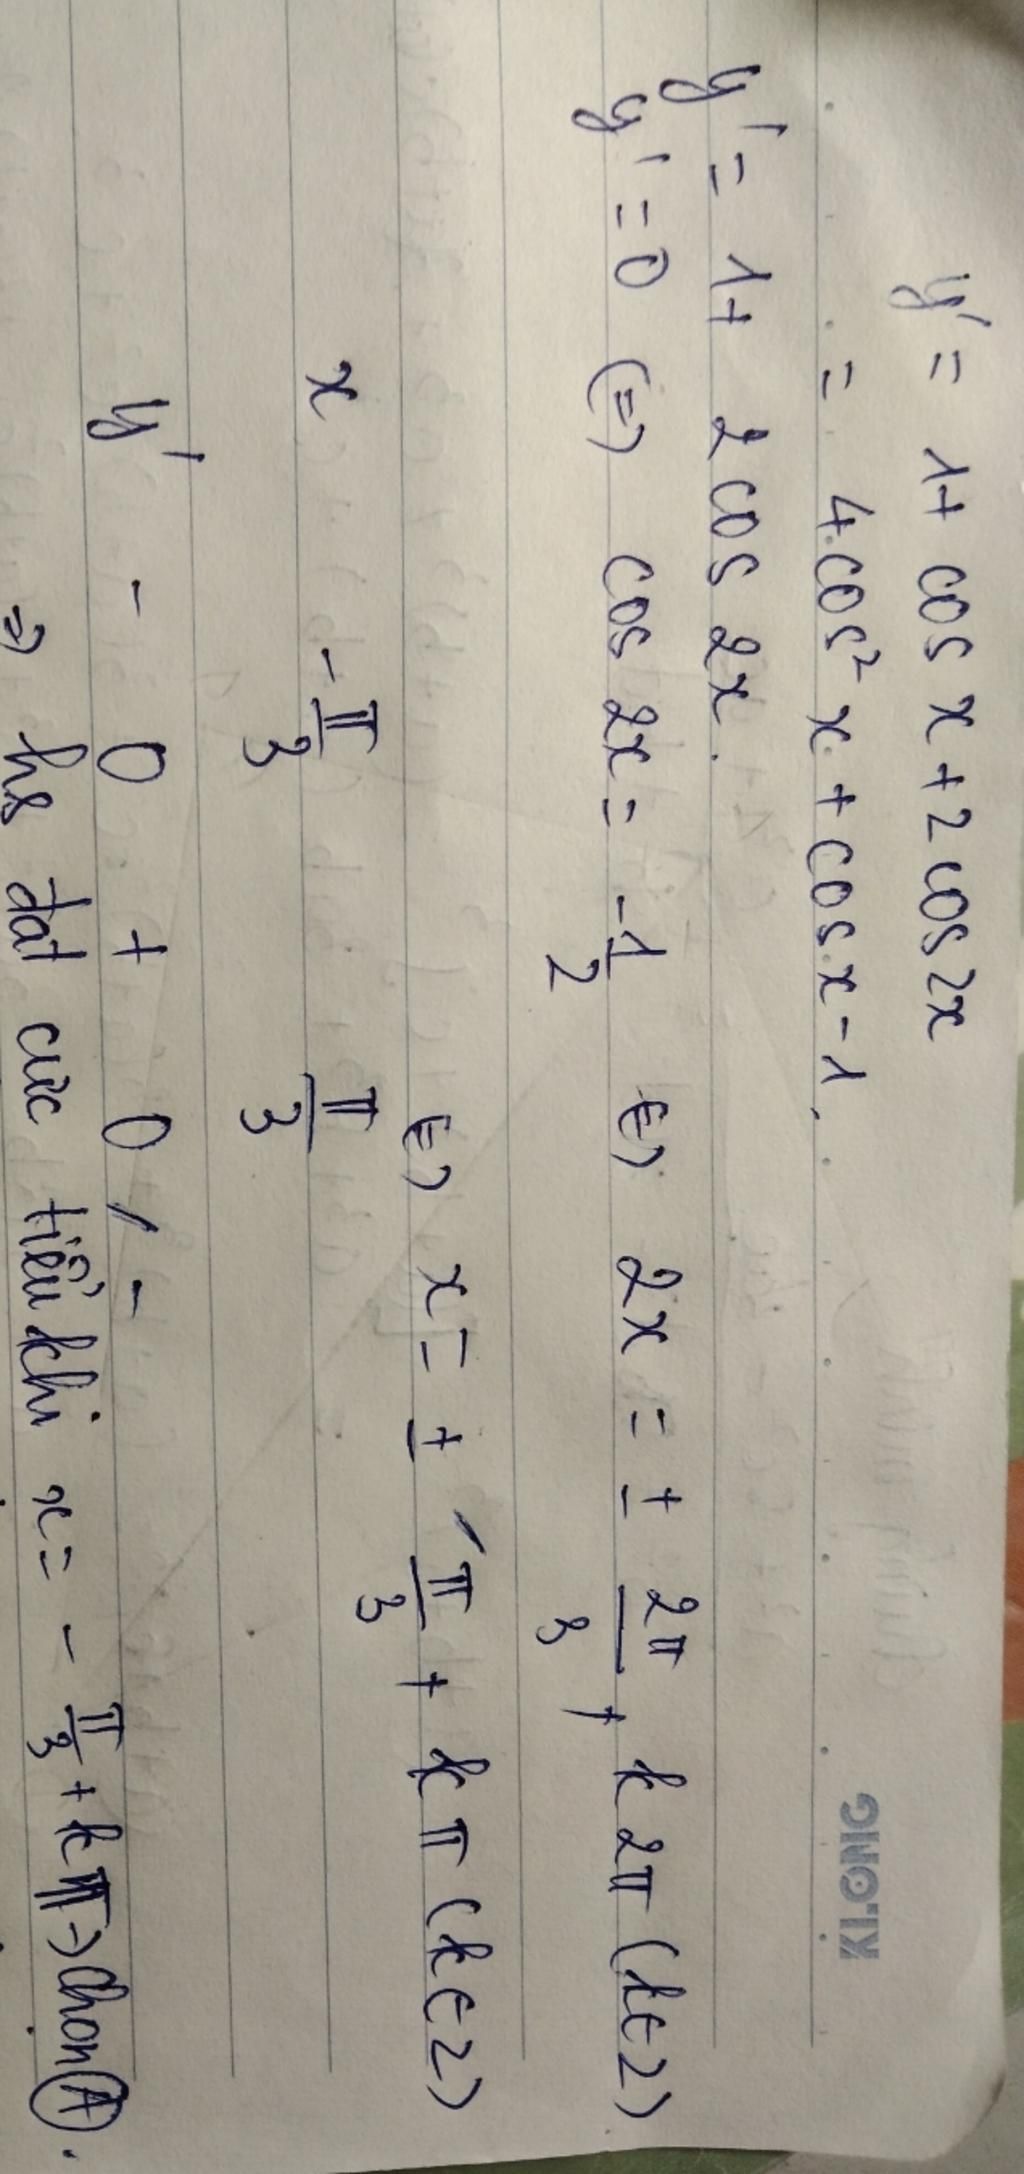 KLONG
y' = 1+ cos x + 2 cos 2x
= 4.cos² x + cos x - 1.
y' = 1+ 2 cos 2x.
y' = 0 (=) cos 2x = -1/2 (=) 2x = ± 2π/3 + k2π (k∈Z)
(=) x = ± π/3 + kπ (k∈Z)
x -π/3 π/3
y' - 0 + 0 -
=> hs đạt cực tiểu khi x = -π/3 + kπ -> chọn A.